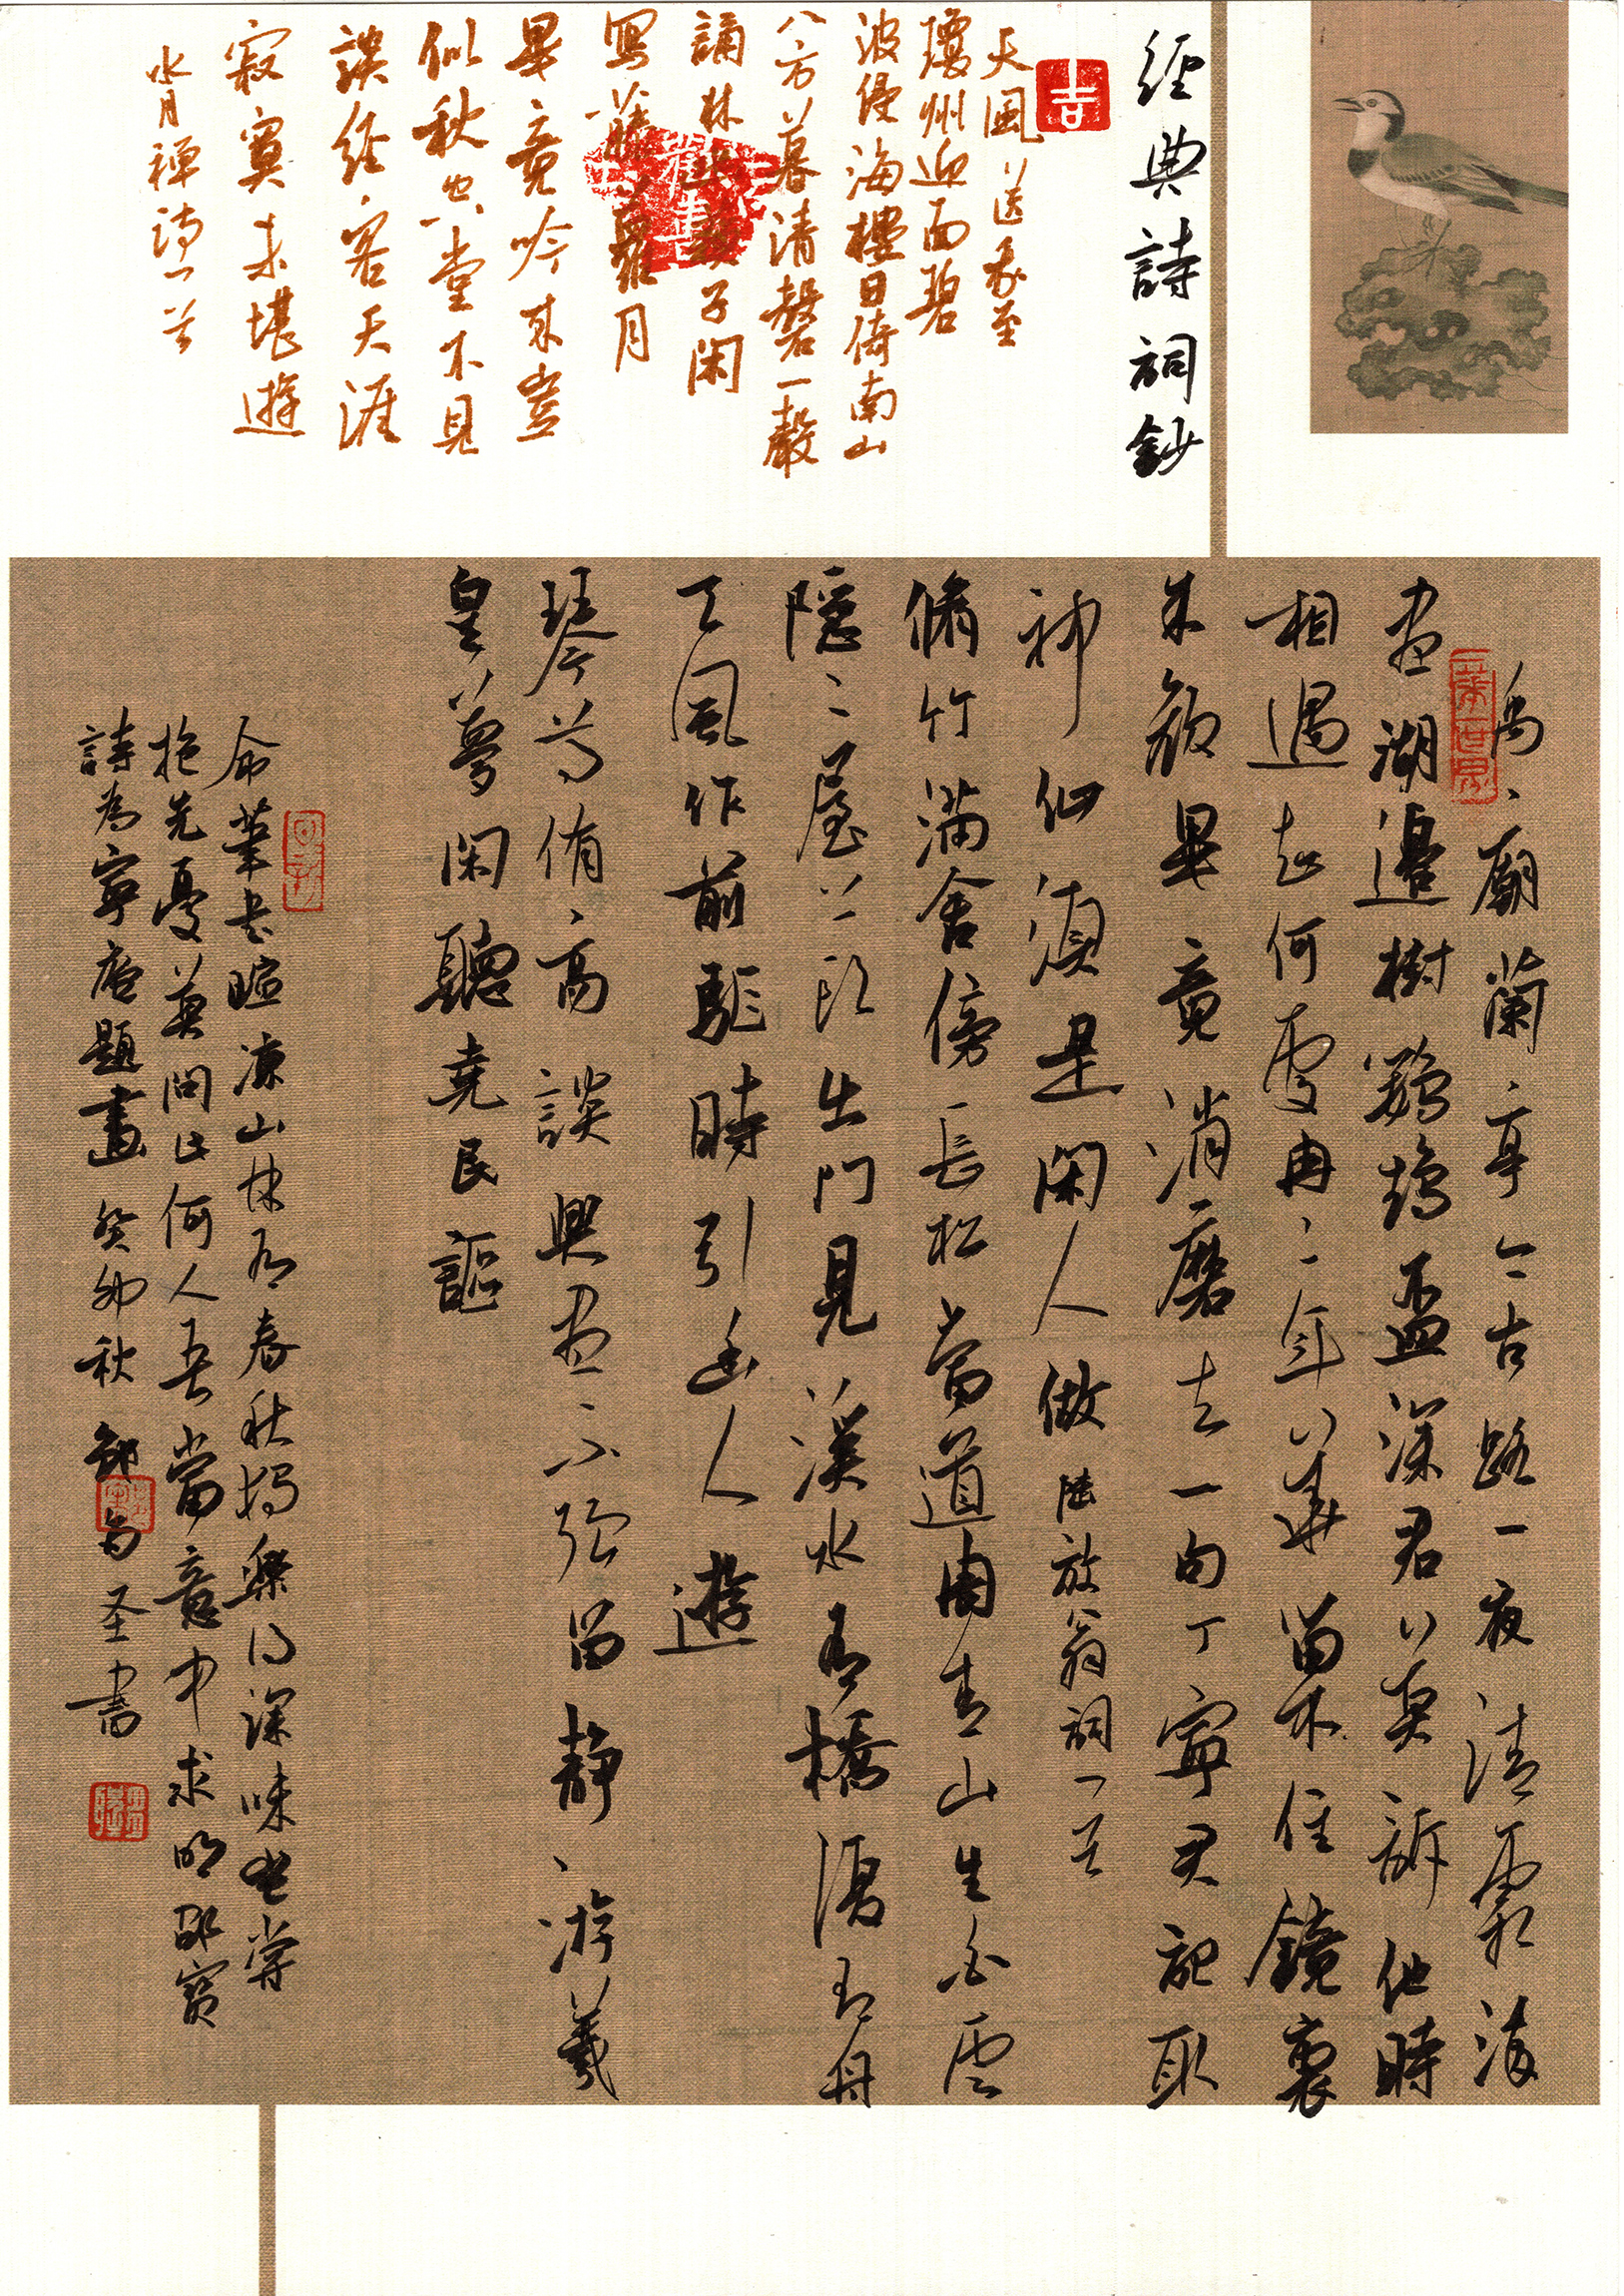 經典詩詞鈔
吉
天風送我至
瓊州迎面碧
波侵海樓日倚南山
八方暮清磬一聲
誦林子閑
寫藤蘿月
畢竟吟來豈
似秋堂不見
談經客天涯
寂寞未堪遊
水月禪詩一首
禹廟蘭亭今古路一夜清霜染
盡湖邊樹鸚鵡盃深君莫訴他時
相遇知何處冉冉年華留不住鏡裏
朱顏畢竟消磨去一句丁寧君記取
神仙須是閑人做 陸放翁詞一首
脩竹滿舍傍長松當道周青山生白雲
隱隱屋上頭出門見溪水有橋復有舟
天風作前驅時引幽人遊
琴尊侑高談興盡不強留靜游羲
皇夢閑聽堯民謳
暄涼山林有春秋獨樂得深味嘗
抱先憂莫問此何人吾當意中求明邵寶
詩為寧庵題畫 癸卯秋 为圣書